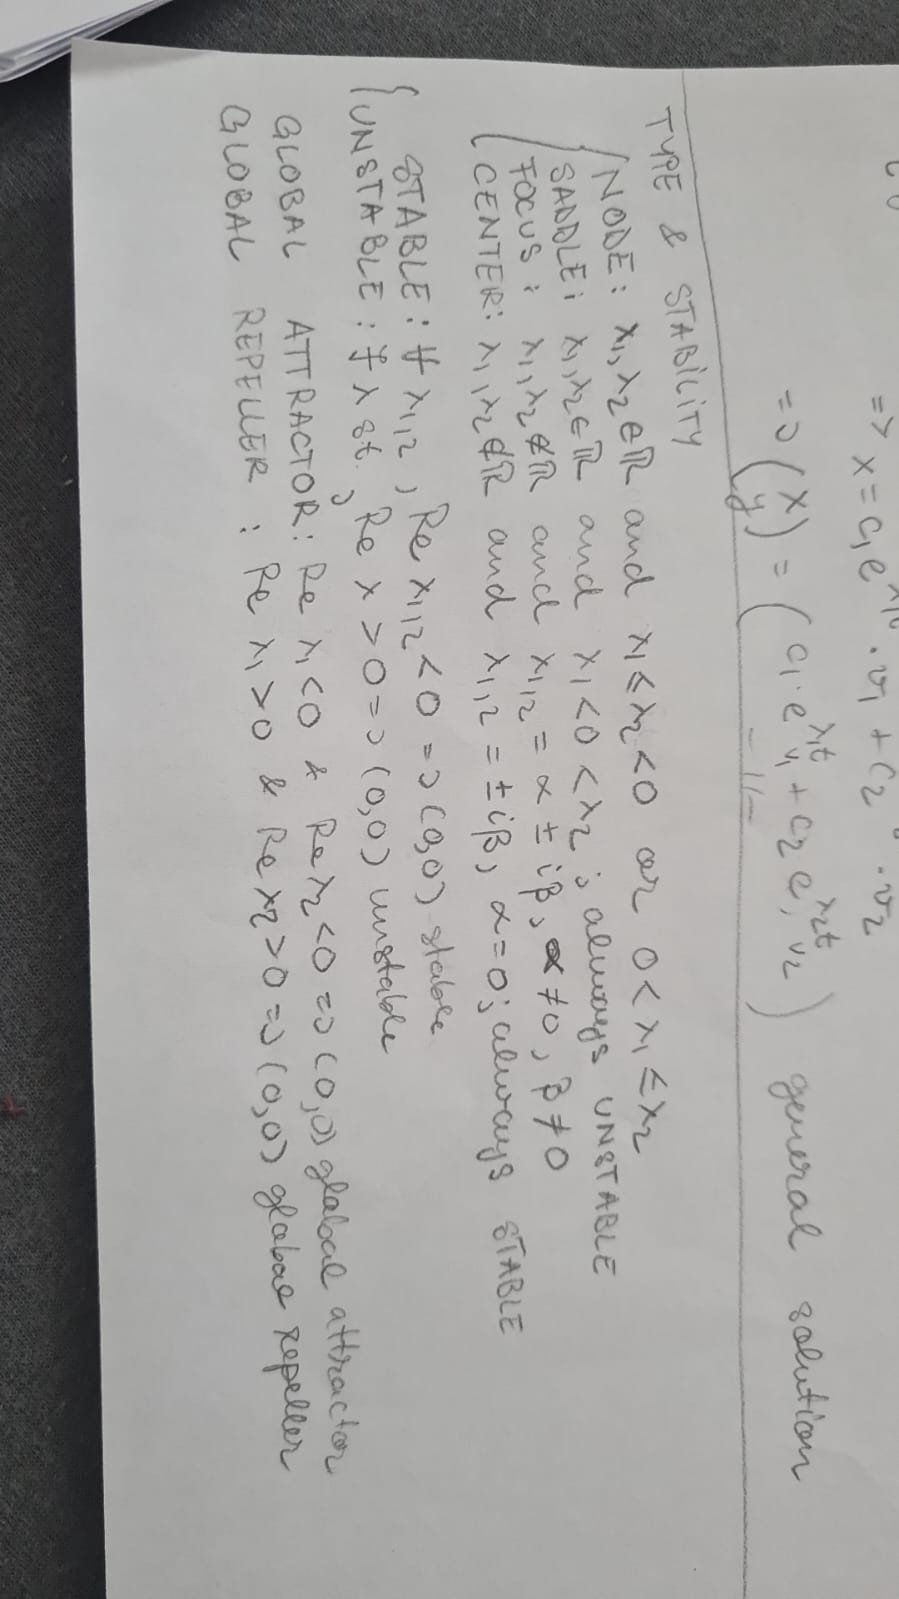 => x = c₁e · v₁ + c₂ · v₂
=> (x y) = (c₁·e^λ₁t v₁ + c₂ e^λ₂t, v₂ -//-) general solution
TYPE & STABILITY
NODE: λ₁,λ₂∈ℝ and λ₁≤λ₂<0 or 0<λ₁≤λ₂
SADDLE: λ₁,λ₂∈ℝ and λ₁<0<λ₂; always UNSTABLE
FOCUS: λ₁,λ₂∉ℝ and λ₁,₂ = α ± iβ, α≠0, β≠0
CENTER: λ₁,λ₂∉ℝ and λ₁,₂ = ±iβ, α=0; always STABLE
STABLE: ∀ λ₁,₂, Re λ₁,₂<0 => (0,0) stable
UNSTABLE: ∃ λ st. Re λ > 0 => (0,0) unstable
GLOBAL ATTRACTOR: Re λ₁<0 & Re λ₂<0 => (0,0) global attractor
GLOBAL REPELLER: Re λ₁>0 & Re λ₂>0 => (0,0) global repeller